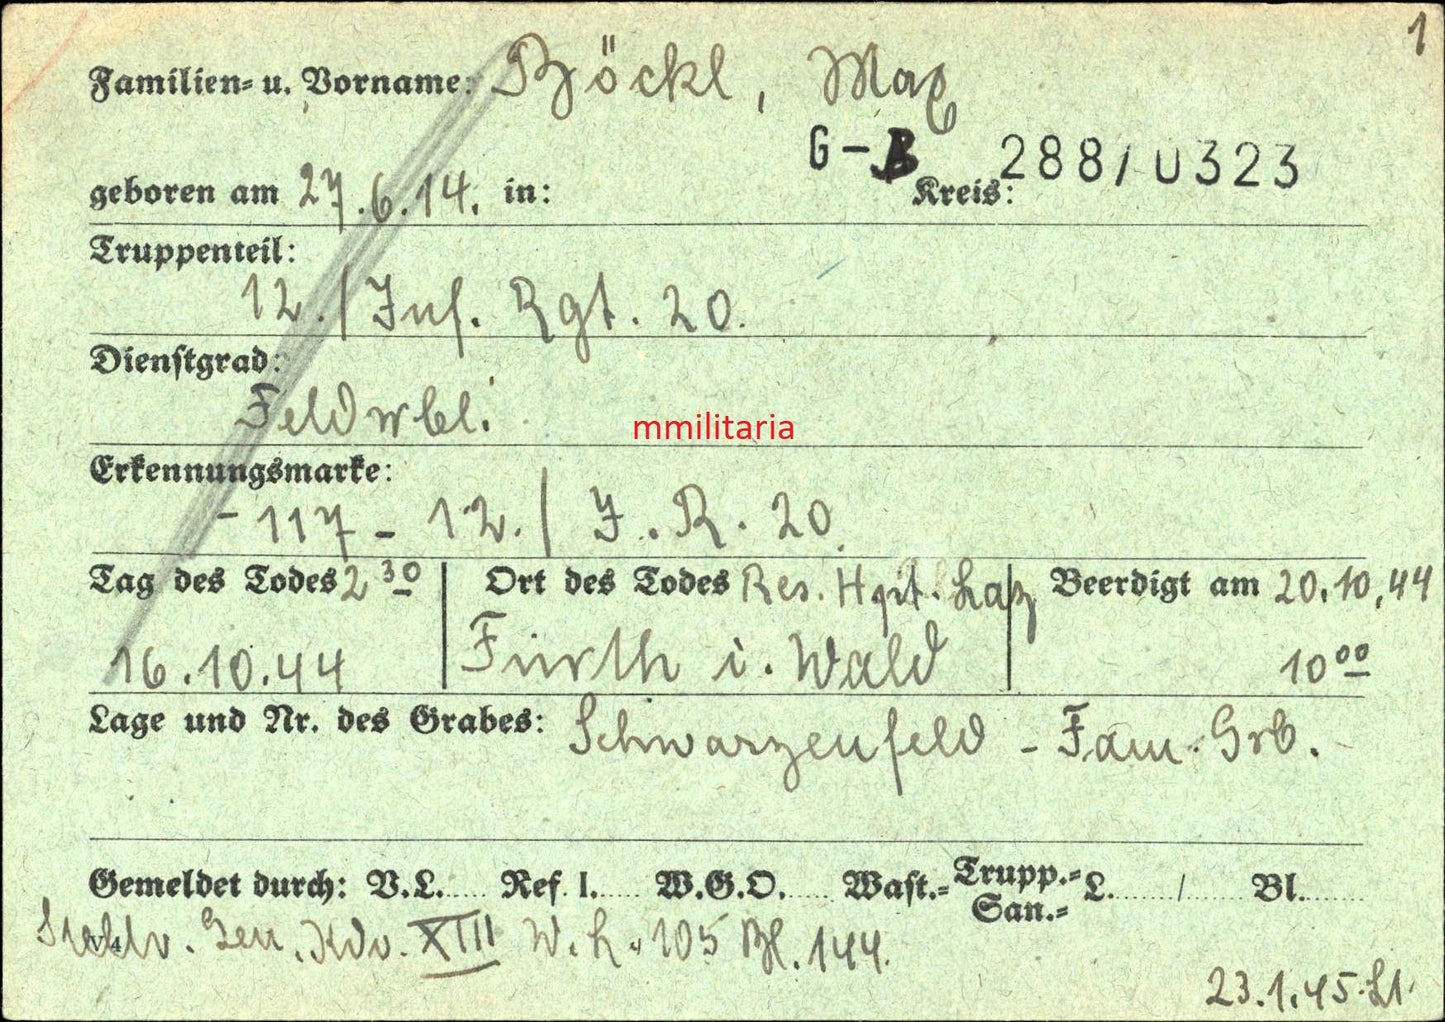 1
Familien- u. Vorname: Böckl, Max
G-B 288/0323
geboren am 27.6.14. in: Kreis:
Truppenteil:
12./Inf. Rgt. 20.
Dienstgrad:
Feldwbl.
mmilitaria
Erkennungsmarke:
- 117 - 12./ J.R. 20.
Tag des Todes 2 30 Ort des Todes Res. Laz Beerdigt am 20.10.44
16.10.44 Furth i. Wald 10 00
Lage und Nr. des Grabes: Schwarzenfeld - Fam. Grb.
Gemeldet durch: V.L..... Ref. I..... W.G.O..... Wast.- Trupp.- San.- L......../........ Bl.........
Stellv. Gen. Kdo. XIII W.L. 105 Bl. 144.
23.1.45.